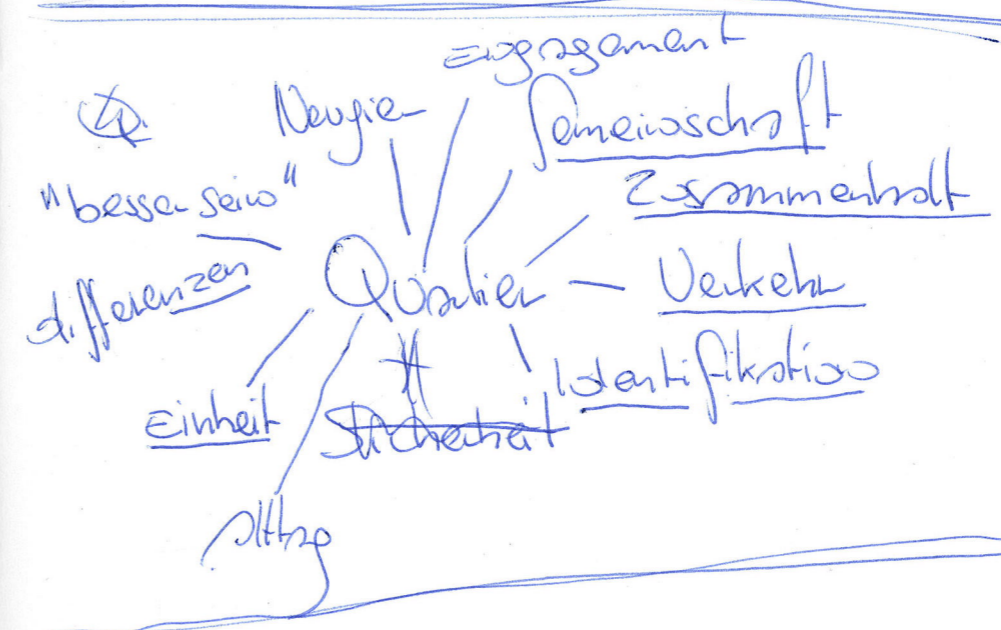 Engagement
Neugier
Gemeinschaft
"besser sein"
Zusammenhalt
differenzen
Quartier
Verkehr
Identifikation
Einheit
Sicherheit
Alltag